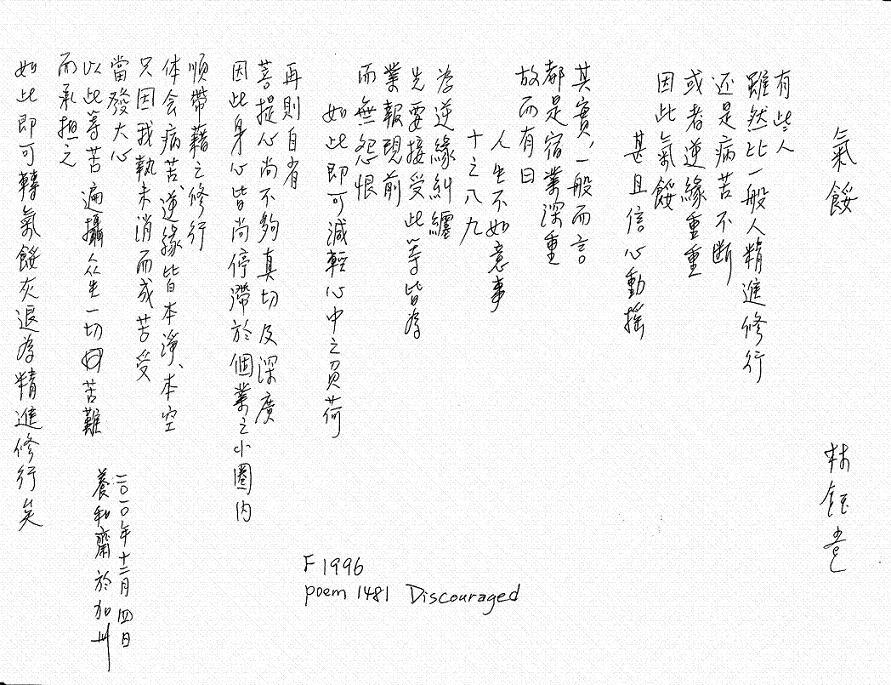 氣餒
林鈺堂
有些人
雖然比一般人精進修行
还是病苦不断
或者逆緣重重
因此氣餒
甚且信心動搖
其實，一般而言
都是宿業深重
故而有曰
人生不如意事
十之八九
為逆緣糾纏
先要接受此等皆為
業報現前
而無怨恨
如此即可減輕心中之負荷
再則自省
菩提心尚不夠真切及深廣
因此身心皆尚停滯於個業之小圈內
順帶藉之修行
体会病苦、逆緣皆本淨、本空
只因我執未消而成苦受
當發大心
以此等苦遍攝众生一切苦難
而承担之
如此即可轉氣餒灰退為精進修行矣
二〇一〇年十二月四日
養和齋於加州
F1996
poem 1481 Discouraged